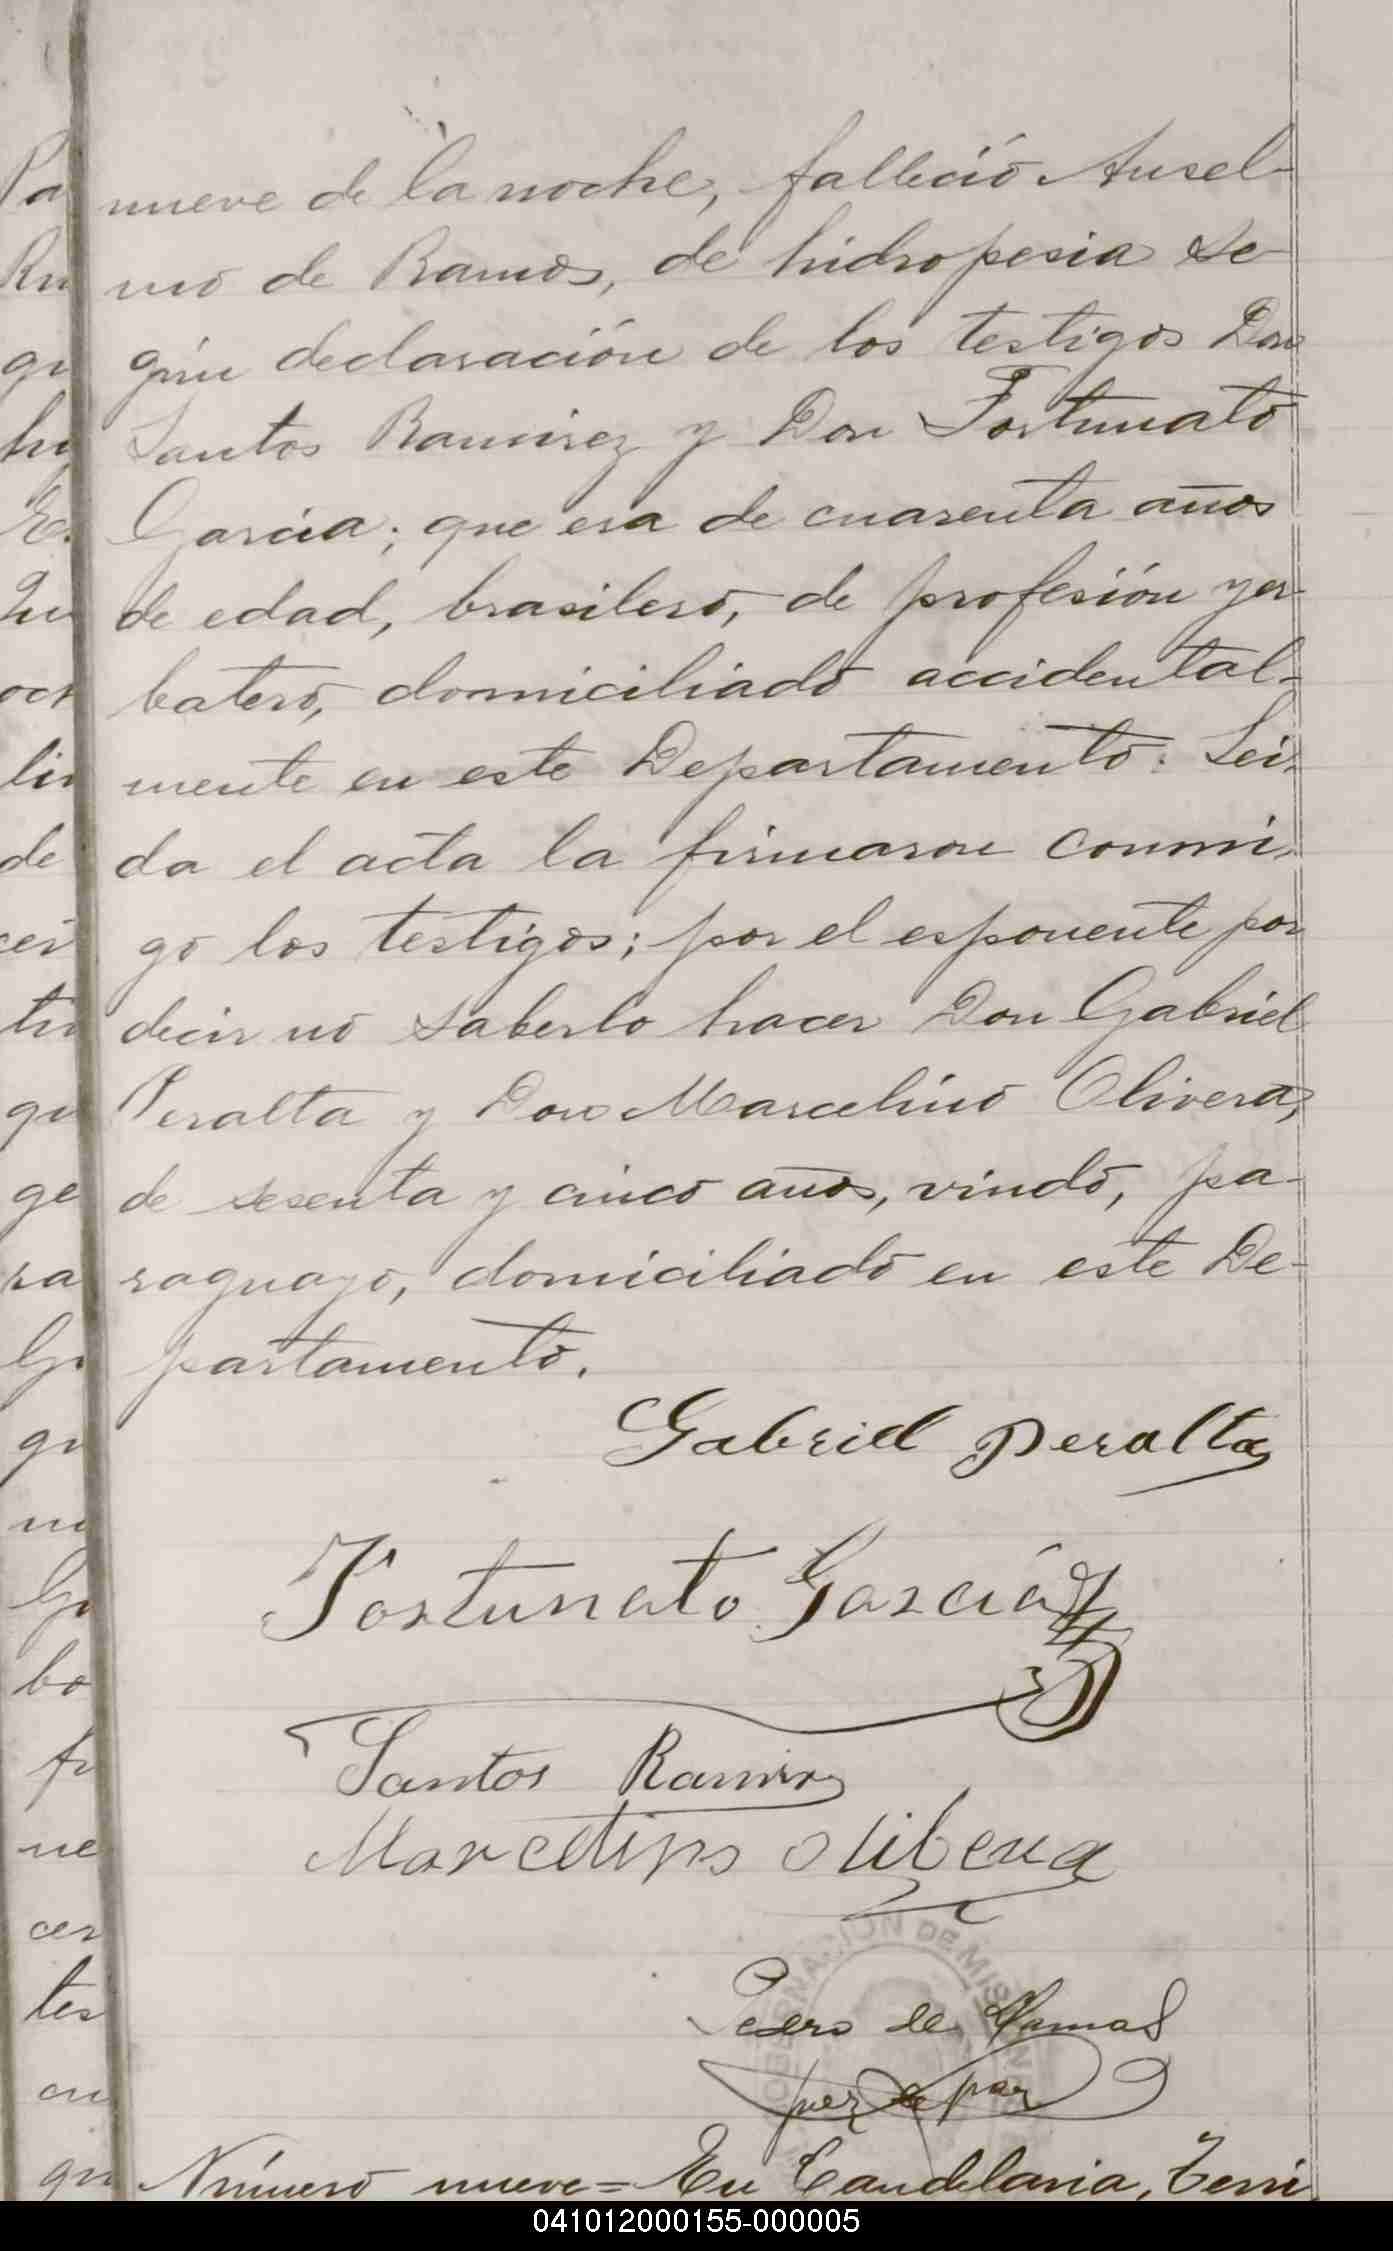 nueve de la noche, falleció Ansel-
mo de Ramos, de hidropesia se-
gún declaración de los testigos Don
Santos Ramirez y Don Fortunato
Garcia; que era de cuarenta años
de edad, brasilero, de profesión yer-
batero, domiciliado accidental-
mente en este Departamento. Lei-
da el acta la firmaron conmi-
go los testigos; por el esponente por
decir no saberlo hacer Don Gabriel
Peralta y Don Marcelino Olivera,
de sesenta y cinco años, viudo, pa-
raguayo, domiciliado en este De-
partamento.
Gabriel Peralta
Fortunato García
Santos Ramirez
Marcelino Olibera
GOBERNACION DE MISIONES
Pedro de
Juez de paz
Número nueve= En Candelaria, Terri
041012000155-000005